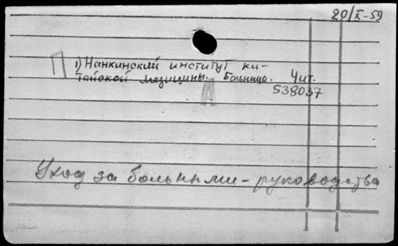 20/X-59
П 1) Нанкинский институт ки-
тайской медицины. Больница. Чит.
Л
538037
Уход за больными - руководства